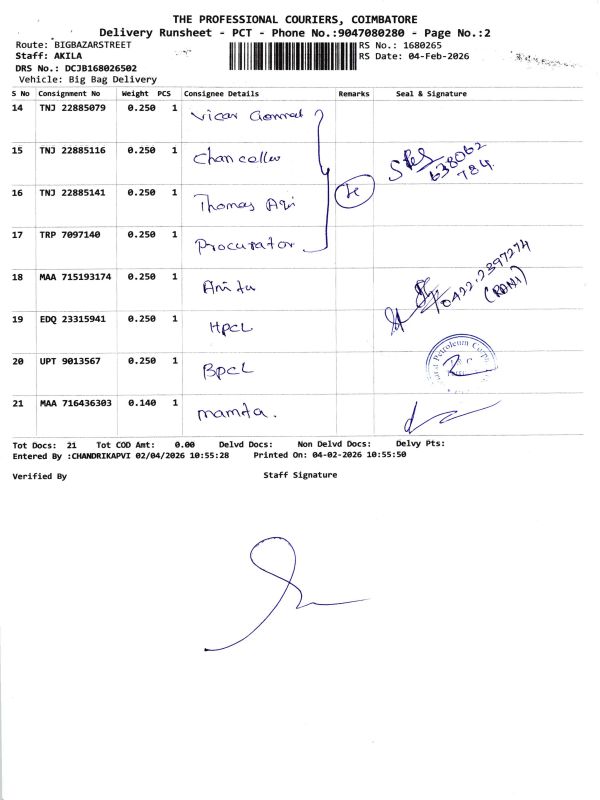 THE PROFESSIONAL COURIERS, COIMBATORE
Delivery Runsheet - PCT - Phone No.:9047080280 - Page No.:2
Route: BIGBAZARSTREET RS No.: 1680265
Staff: AKILA RS Date: 04-Feb-2026
DRS No.: DCJB168026502
Vehicle: Big Bag Delivery
S No Consignment No Weight PCS Consignee Details Remarks Seal & Signature
14 TNJ 22885079 0.250 1 Vicar General
15 TNJ 22885116 0.250 1 Chancellor
638062
784
16 TNJ 22885141 0.250 1 Thomas
17 TRP 7097140 0.250 1 Procurator
18 MAA 715193174 0.250 1 Anita
0422.2397274
19 EDQ 23315941 0.250 1 HPCL
20 UPT 9013567 0.250 1 BPCL
Petroleum Corp
21 MAA 716436303 0.140 1 mamta.
Tot Docs: 21 Tot COD Amt: 0.00 Delvd Docs: Non Delvd Docs: Delvy Pts:
Entered By :CHANDRIKAPVI 02/04/2026 10:55:28 Printed On: 04-02-2026 10:55:50
Verified By Staff Signature